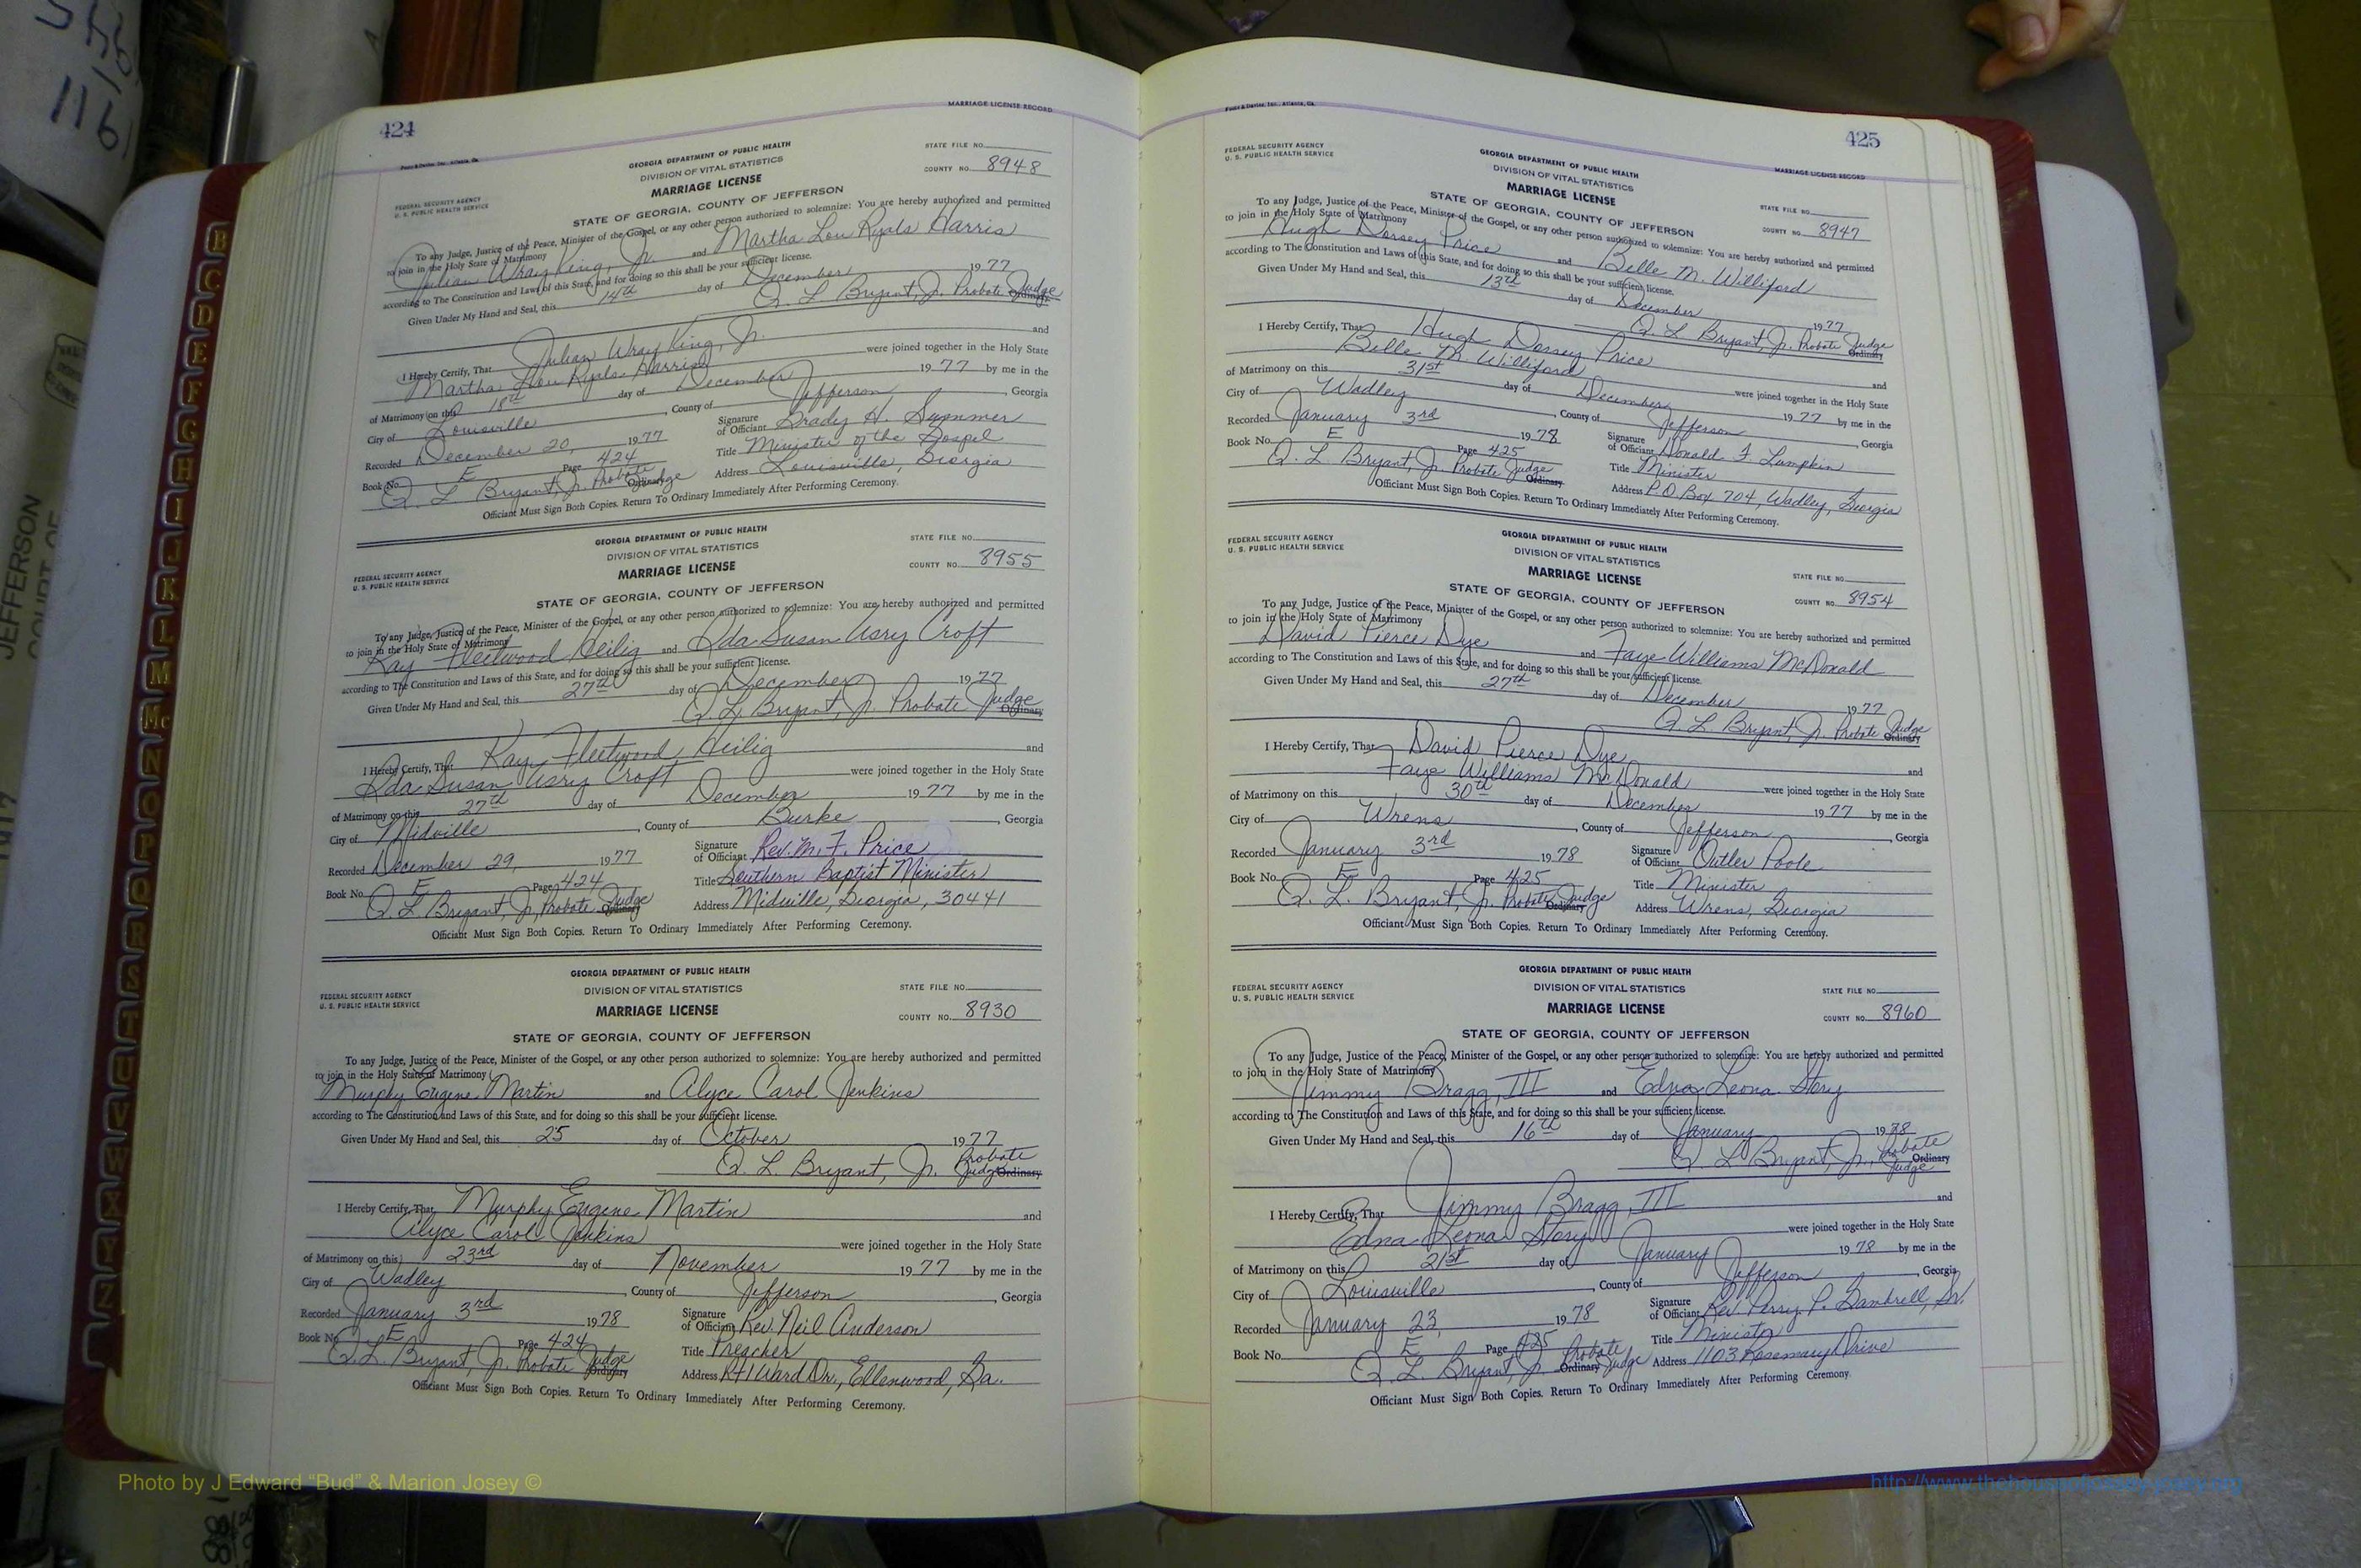 424
MARRIAGE LICENSE RECORD
Foote & Davies, Inc., Atlanta, Ga.
FEDERAL SECURITY AGENCY
U. S. PUBLIC HEALTH SERVICE
GEORGIA DEPARTMENT OF PUBLIC HEALTH
DIVISION OF VITAL STATISTICS
MARRIAGE LICENSE
STATE OF GEORGIA, COUNTY OF JEFFERSON
STATE FILE NO.
COUNTY NO. 8948
To any Judge, Justice of the Peace, Minister of the Gospel, or any other person authorized to solemnize: You are hereby authorized and permitted
to join in the Holy State of Matrimony
Julian Wray King, Jr. and Martha Lou Ryals Harris
according to The Constitution and Laws of this State, and for doing so this shall be your sufficient license.
Given Under My Hand and Seal, this 14th day of December 1977
Q. L. Bryant, Jr. Probate Judge Ordinary
I Hereby Certify, That Julian Wray King, Jr. and
Martha Lou Ryals Harris were joined together in the Holy State
of Matrimony on this 18th day of December 1977 by me in the
City of Louisville, County of Jefferson, Georgia
Recorded December 20, 1977 Signature of Officiant Grady H. Summer
Book No. E Page 424 Title Minister of the Gospel
Q. L. Bryant, Jr. Probate Judge Ordinary Address Louisville, Georgia
Officiant Must Sign Both Copies. Return To Ordinary Immediately After Performing Ceremony.
FEDERAL SECURITY AGENCY
U. S. PUBLIC HEALTH SERVICE
GEORGIA DEPARTMENT OF PUBLIC HEALTH
DIVISION OF VITAL STATISTICS
MARRIAGE LICENSE
STATE OF GEORGIA, COUNTY OF JEFFERSON
STATE FILE NO.
COUNTY NO. 8955
To any Judge, Justice of the Peace, Minister of the Gospel, or any other person authorized to solemnize: You are hereby authorized and permitted
to join in the Holy State of Matrimony
Ray Fleetwood Heilig and Ida Susan Usry Croft
according to The Constitution and Laws of this State, and for doing so this shall be your sufficient license.
Given Under My Hand and Seal, this 27th day of December 1977
Q. L. Bryant, Jr. Probate Judge Ordinary
I Hereby Certify, That Ray Fleetwood Heilig and
Ida Susan Usry Croft were joined together in the Holy State
of Matrimony on this 27th day of December 1977 by me in the
City of Midville, County of Burke, Georgia
Recorded December 29, 1977 Signature of Officiant Rev. M. F. Price
Book No. E Page 424 Title Southern Baptist Minister
Q. L. Bryant, Jr, Probate Judge Ordinary Address Midville, Georgia, 30441
Officiant Must Sign Both Copies. Return To Ordinary Immediately After Performing Ceremony.
FEDERAL SECURITY AGENCY
U. S. PUBLIC HEALTH SERVICE
GEORGIA DEPARTMENT OF PUBLIC HEALTH
DIVISION OF VITAL STATISTICS
MARRIAGE LICENSE
STATE OF GEORGIA, COUNTY OF JEFFERSON
STATE FILE NO.
COUNTY NO. 8930
To any Judge, Justice of the Peace, Minister of the Gospel, or any other person authorized to solemnize: You are hereby authorized and permitted
to join in the Holy State of Matrimony
Murphy Eugene Martin and Alyce Carol Jenkins
according to The Constitution and Laws of this State, and for doing so this shall be your sufficient license.
Given Under My Hand and Seal, this 25 day of October 1977
Q. L. Bryant, Jr. Probate Judge Ordinary
I Hereby Certify, That Murphy Eugene Martin and
Alyce Carol Jenkins were joined together in the Holy State
of Matrimony on this 23rd day of November 1977 by me in the
City of Wadley, County of Jefferson, Georgia
Recorded January 3rd 1978 Signature of Officiant Rev. Neil Anderson
Book No. E Page 424 Title Preacher
Q. L. Bryant, Jr. Probate Judge Ordinary Address Rt 1 Ward Dr., Ellenwood, Ga.
Officiant Must Sign Both Copies. Return To Ordinary Immediately After Performing Ceremony.
Foote & Davies, Inc., Atlanta, Ga.
425
MARRIAGE LICENSE RECORD
FEDERAL SECURITY AGENCY
U. S. PUBLIC HEALTH SERVICE
GEORGIA DEPARTMENT OF PUBLIC HEALTH
DIVISION OF VITAL STATISTICS
MARRIAGE LICENSE
STATE OF GEORGIA, COUNTY OF JEFFERSON
STATE FILE NO.
COUNTY NO. 8947
To any Judge, Justice of the Peace, Minister of the Gospel, or any other person authorized to solemnize: You are hereby authorized and permitted
to join in the Holy State of Matrimony
Hugh Dorsey Price and Belle M. Williford
according to The Constitution and Laws of this State, and for doing so this shall be your sufficient license.
Given Under My Hand and Seal, this 13th day of December 1977
Q. L. Bryant, Jr. Probate Judge Ordinary
I Hereby Certify, That Hugh Dorsey Price and
Belle M Williford were joined together in the Holy State
of Matrimony on this 31st day of December 1977 by me in the
City of Wadley, County of Jefferson, Georgia
Recorded January 3rd 1978 Signature of Officiant Donald F. Lumpkin
Book No. E Page 425 Title Minister
Q. L. Bryant, Jr. Probate Judge Ordinary Address P.O. Box 704, Wadley, Georgia
Officiant Must Sign Both Copies. Return To Ordinary Immediately After Performing Ceremony.
FEDERAL SECURITY AGENCY
U. S. PUBLIC HEALTH SERVICE
GEORGIA DEPARTMENT OF PUBLIC HEALTH
DIVISION OF VITAL STATISTICS
MARRIAGE LICENSE
STATE OF GEORGIA, COUNTY OF JEFFERSON
STATE FILE NO.
COUNTY NO. 8954
To any Judge, Justice of the Peace, Minister of the Gospel, or any other person authorized to solemnize: You are hereby authorized and permitted
to join in the Holy State of Matrimony
David Pierce Dye and Faye Williams McDonald
according to The Constitution and Laws of this State, and for doing so this shall be your sufficient license.
Given Under My Hand and Seal, this 27th day of December 1977
Q. L. Bryant, Jr. Probate Judge Ordinary
I Hereby Certify, That David Pierce Dye and
Faye Williams McDonald were joined together in the Holy State
of Matrimony on this 30th day of December 1977 by me in the
City of Wrens, County of Jefferson, Georgia
Recorded January 3rd 1978 Signature of Officiant Outler Poole
Book No. E Page 425 Title Minister
Q. L. Bryant, Jr. Probate Judge Ordinary Address Wrens, Georgia
Officiant Must Sign Both Copies. Return To Ordinary Immediately After Performing Ceremony.
FEDERAL SECURITY AGENCY
U. S. PUBLIC HEALTH SERVICE
GEORGIA DEPARTMENT OF PUBLIC HEALTH
DIVISION OF VITAL STATISTICS
MARRIAGE LICENSE
STATE OF GEORGIA, COUNTY OF JEFFERSON
STATE FILE NO.
COUNTY NO. 8960
To any Judge, Justice of the Peace, Minister of the Gospel, or any other person authorized to solemnize: You are hereby authorized and permitted
to join in the Holy State of Matrimony
Jimmy Bragg, III and Edna Leona Story
according to The Constitution and Laws of this State, and for doing so this shall be your sufficient license.
Given Under My Hand and Seal, this 16th day of January 1978
Q. L. Bryant, Jr., Probate Judge Ordinary
I Hereby Certify, That Jimmy Bragg, III and
Edna Leona Story were joined together in the Holy State
of Matrimony on this 21st day of January 1978 by me in the
City of Louisville, County of Jefferson, Georgia
Recorded January 23, 1978 Signature of Officiant Rev. Perry P. Gambrell, Sr.
Book No. E Page 425 Title Minister
Q. L. Bryant, Jr. Probate Judge Ordinary Address 1103 Rosemary Drive
Officiant Must Sign Both Copies. Return To Ordinary Immediately After Performing Ceremony.
B
C
D
E
F
G
H
I
J
K
L
M
Mc
N
O
P
Q
R
S
T
U
V
W
X
Y
Z
JEFFERSON
COURT OF
Photo by J Edward “Bud” & Marion Josey ©